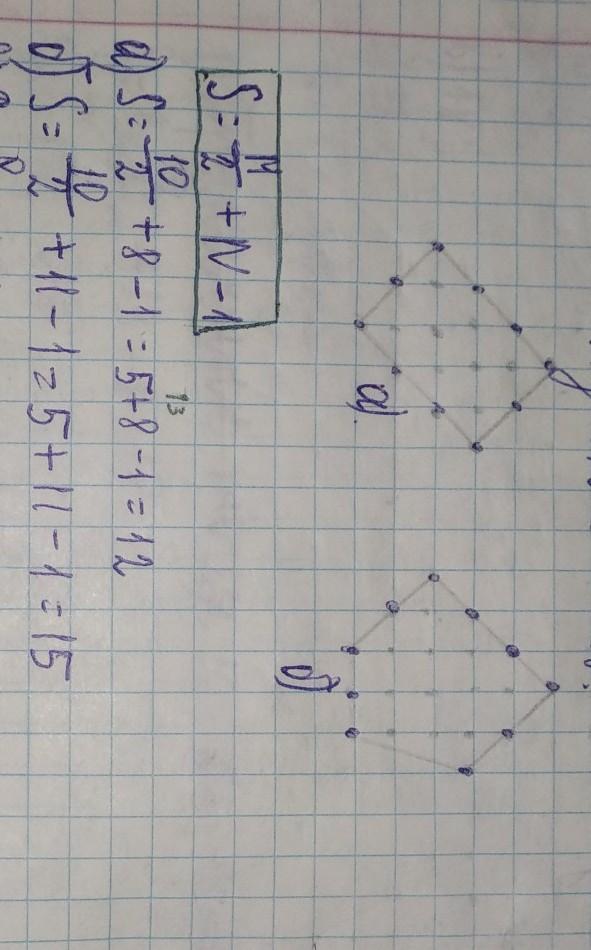 а)
б)
S = М/2 + N - 1
а) S = 10/2 + 8 - 1 = 5 + 8 - 1 = 12
13
б) S = 10/2 + 11 - 1 = 5 + 11 - 1 = 15